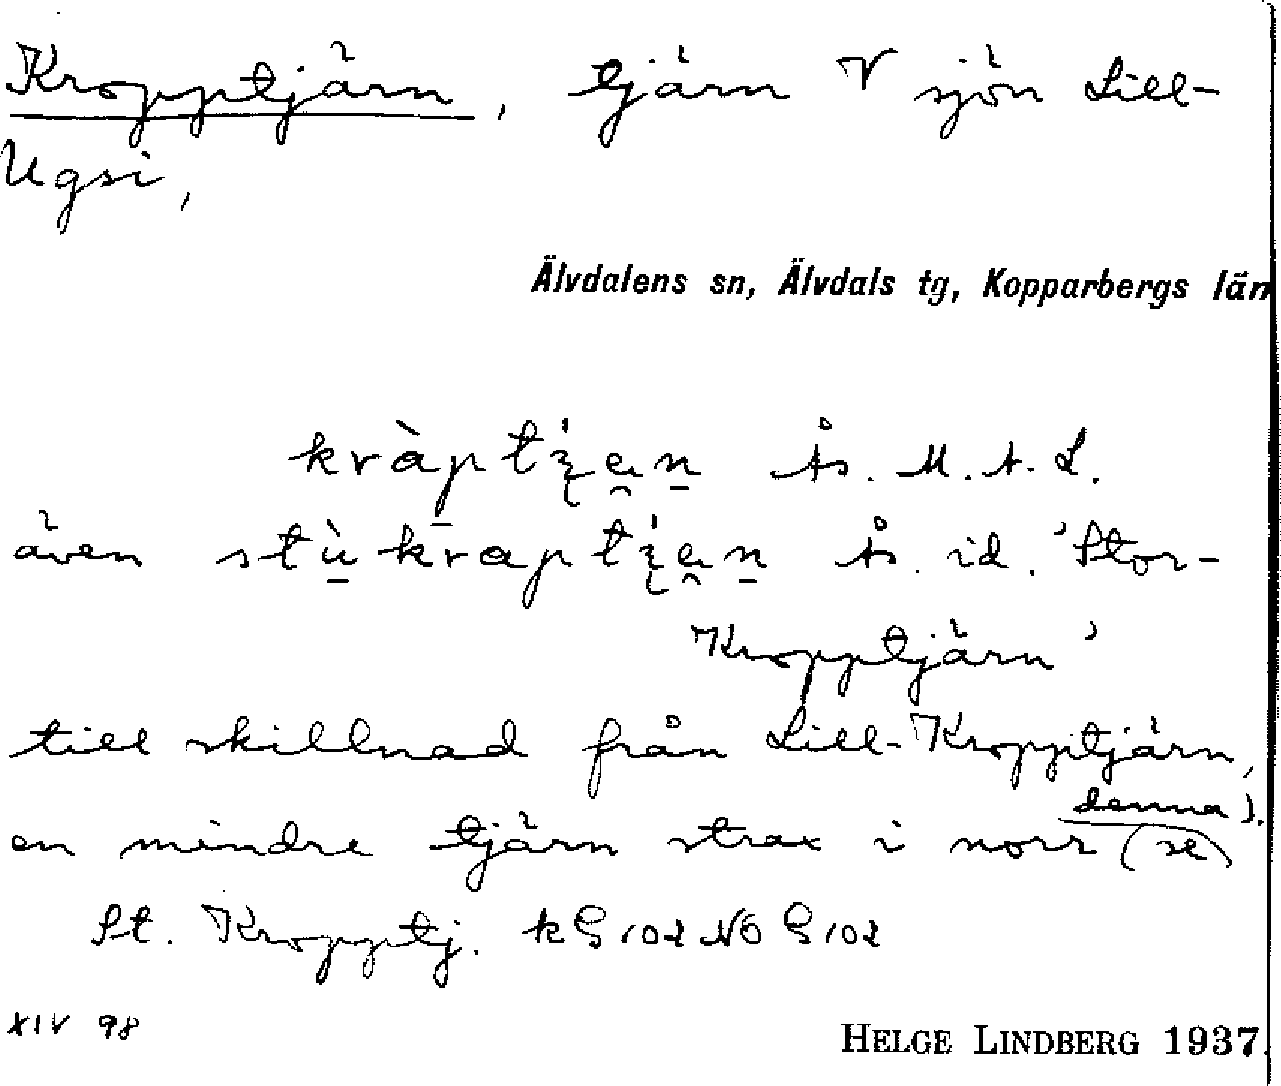 Kropptjärn, tjärn V sjön Lill-
Ugsi,
Älvdalens sn, Älvdals tg, Kopparbergs län
Ås. M.A.L.
även Ås. id. 'Stor-
Kropptjärn'
till skillnad från Lill-Kropptjärn,
en mindre tjärn strax i norr (se
denna).
St. Kropptj. kG 102 NO G 102
XIV 98
HELGE LINDBERG 1937.